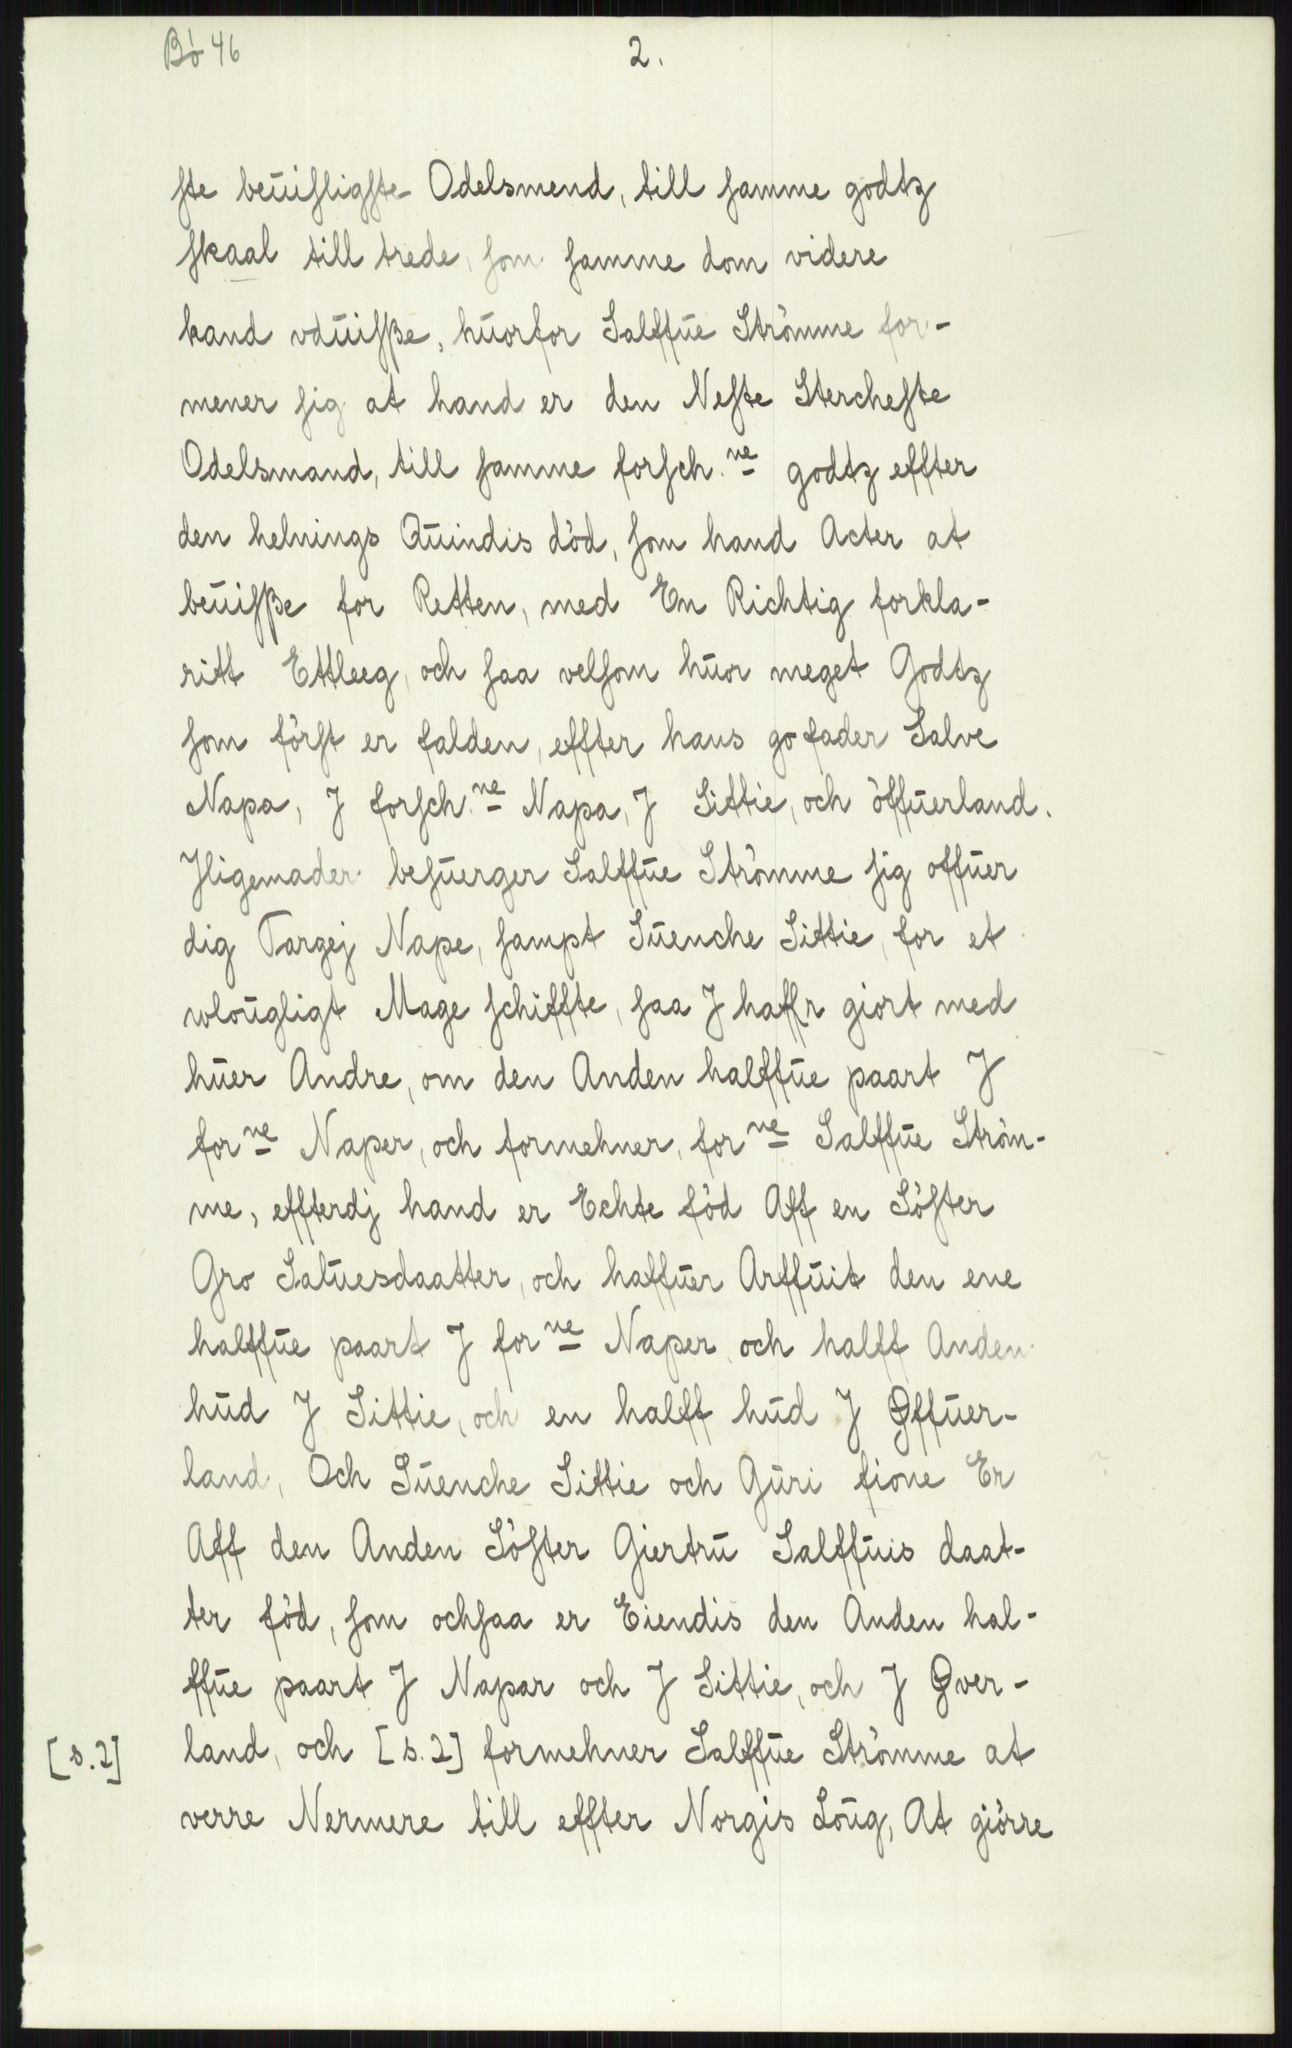 Bö 46
2.
ste beuisligste Odelsmend, till samme godtz
skaal till trede, som samme dom videre
kand vduisße, huorfor Salffue Strömme for-
mener sig at hand er den Neste Stercheste
Odelsmand, till samme forsch.ne godtz effter
den helnings Quindis död, som hand Acter at
beuisße for Retten, med En Richtig forkla-
ritt Ettleeg, och saa velsom huor meget Godtz
som först er falden, effter hans gofader Salve
Napa, J forsch.ne Napa, J Sittie, och öffuerland.
Jligemader besuerger Salffue Strömme sig offuer
dig Targej Nape, sampt Suenche Sittie, for et
wlougligt Mage schiffte, saa J haffr giort med
huer Andre, om den Anden halffue paart J
forne Naper, och formehner, forne Salffue Ström-
me, effterdj hand er Echte föd Aff en Söster
Gro Saluesdaatter, och haffuer Arffuit den ene
halffue paart J forne Naper och halff Anden
hud J Sittie, och en halff hud J Øffuer-
land, Och Suenche Sittie och Guri fione Er
Aff den Anden Söster Giertru Salffuis daat-
ter föd, som ochsaa er Eiendis den Anden hal-
ffue paart J Napar och J Sittie, och J Øver-
[s.2] land, och [s.2] formehner Salffue Strömme at
verre Nermere till effter Norgis Loug, At giörre